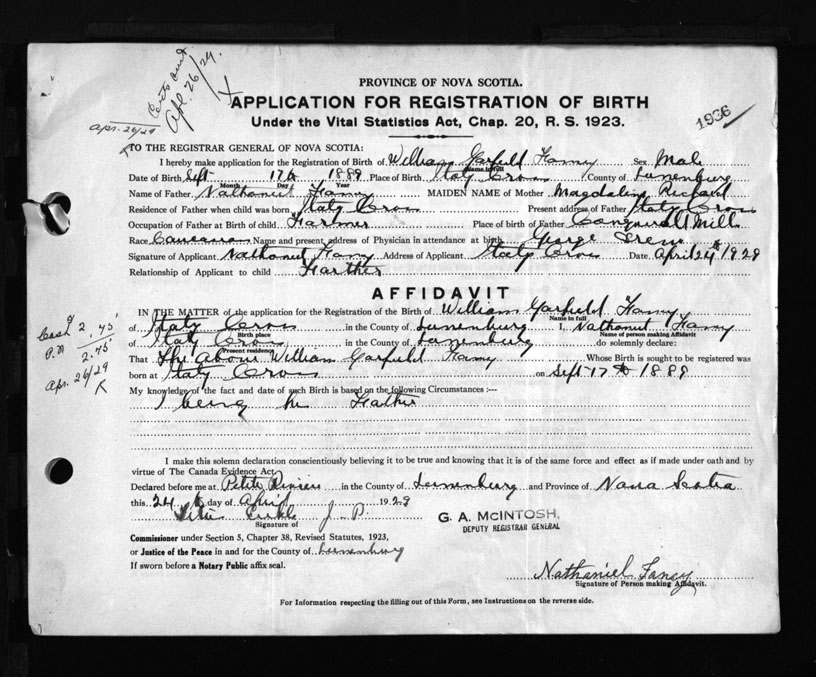 Certs sent
Apl. 26/29.
apr. 26/29
PROVINCE OF NOVA SCOTIA.
APPLICATION FOR REGISTRATION OF BIRTH
1936
Under the Vital Statistics Act, Chap. 20, R. S. 1923.
TO THE REGISTRAR GENERAL OF NOVA SCOTIA:
I hereby make application for the Registration of Birth of William Garfield Fancy Sex Male
Name in full
Date of Birth Sept 17th 1889 Place of Birth Italy Cross County of Lunenburg
Month Day Year
Name of Father Nathaniel Fancy MAIDEN NAME of Mother Magdaline Richard
Residence of Father when child was born Italy Cross Present address of Father Italy Cross
Occupation of Father at Birth of child Farmer Place of birth of Father Conquerall Mills
Race Name and present address of Physician in attendance at birth George
Signature of Applicant Nathaniel Fancy Address of Applicant Italy Cross Date April 24th 1929
Relationship of Applicant to child Farther
AFFIDAVIT
IN THE MATTER of the application for the Registration of the Birth of William Garfield Fancy
Name in full
of Italy Cross in the County of Lunenburg I, Nathaniel Fancy
Birth place Name of person making Affidavit
of Italy Cross in the County of Lunenburg do solemnly declare:
Present residence
That the above William Garfield Fancy Whose Birth is sought to be registered was
born at Italy Cross on Sept 17th 1889
My knowledge of the fact and date of such Birth is based on the following Circumstances :—
I being his Father
Cash 2.45
P.N
2.45
Apr. 26/29
K
I make this solemn declaration conscientiously believing it to be true and knowing that it is of the same force and effect as if made under oath and by
virtue of The Canada Evidence Act.
Declared before me at Petite Riviere in the County of Lunenburg and Province of Nova Scotia
this 24th day of April 1929
Titus J. P.
Signature of
G. A. McINTOSH,
DEPUTY REGISTRAR GENERAL
Commissioner under Section 5, Chapter 38, Revised Statutes, 1923,
or Justice of the Peace in and for the County of Lunenburg
If sworn before a Notary Public affix seal.
Nathaniel Fancy
Signature of Person making Affidavit.
For Information respecting the filling out of this Form, see Instructions on the reverse side.